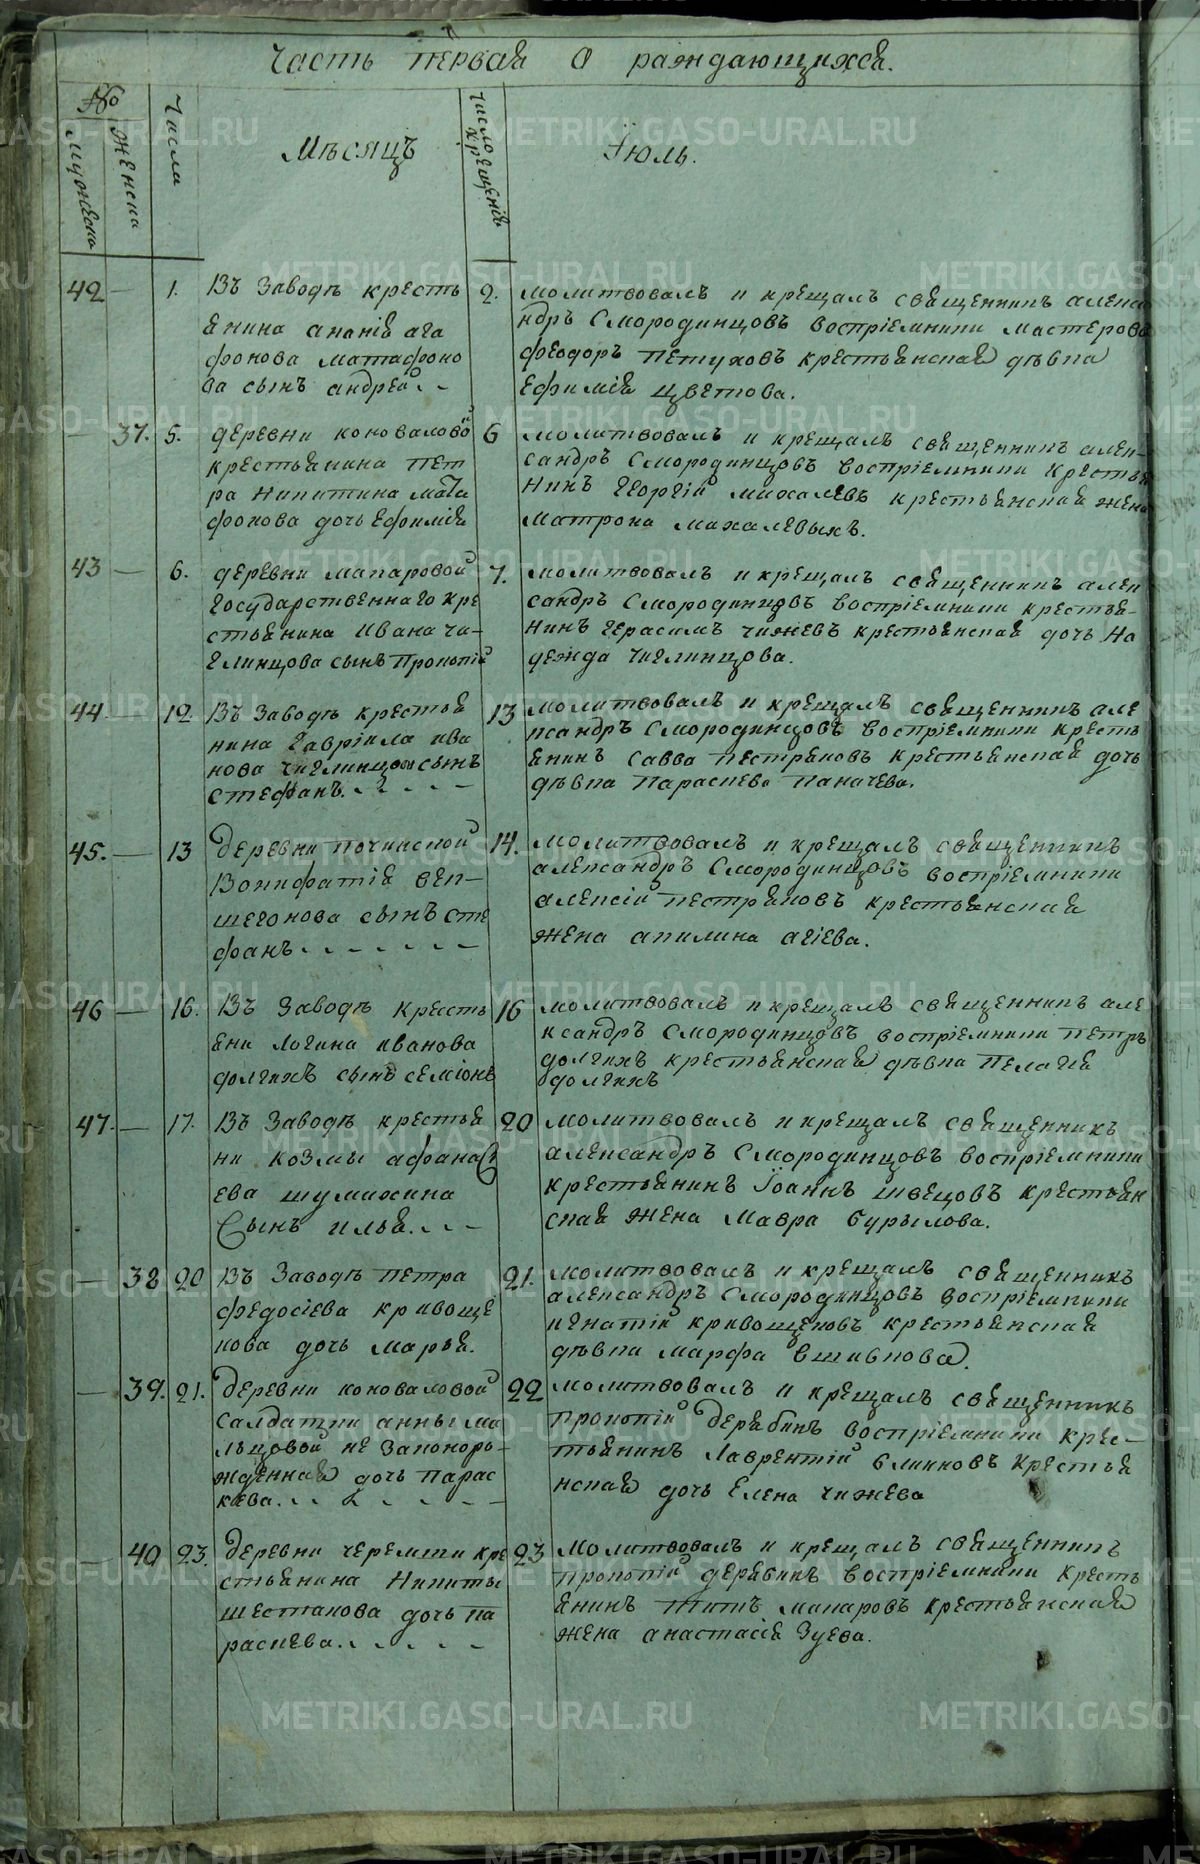 Часть первая О раждающихся.
№
мужеска
женска
Числа
Мѣсяцъ
число крещенія
Їюль.
42 — 1.
Въ Заводѣ кресть
янина ананія ага
фонова матафоно
ва сынъ андрей
2.
молитвовалъ и крещалъ священникъ алекса
ндръ Смородинцовъ воспріемники мастерово
феодоръ Петуховъ крестьянская дѣвка
Ефимія цветова.
— 37. 5.
деревни коноваловой
крестьянина Пет
ра Никитина мата
фонова дочь Ефимія
6
молитвовалъ и крещалъ священникъ алек-
сандръ Смородинцовъ воспріемники крестья
нинъ Георгій михалевъ крестьянская жена
Матрона михалевыхъ.
43 — 6.
деревни макаровой
Государственнаго кре
стьянина Ивана чи-
глинцова сынъ Прокопій
7.
молитвовалъ и крещалъ священникъ алек
сандръ Смородинцовъ воспріемники крестья-
нинъ Герасимъ чижевъ крестьянская дочь На
дежда чиглинцова.
44 — 12
Въ Заводѣ крестья
нина Гавріила ива
нова чиглинцова сынъ
Стефанъ.
13
молитвовалъ и крещалъ священникъ але
ксандръ Смородинцовъ воспріемники кресть
янинъ Савва пестряковъ крестьянская дочь
дѣвка Параскева Паначева.
45. — 13
деревни Починской
Вонифатія векшегонова сынъ сте
фанъ
14.
молитвовалъ и крещалъ священникъ
александръ Смородинцовъ воспріемники
алексій пестряковъ крестьянская
жена акилина агіева.
46 — 16.
Въ Заводѣ кресть
яни логина иванова
долгихъ сынъ семіонъ
16
молитвовалъ и крещалъ священникъ але
ксандръ Смородинцовъ воспріемники Петръ
долгихъ крестьянская дѣвка Пелагія
долгихъ
47. — 17.
Въ Заводѣ крестья
ни козмы афанась
ева шумихина
Сынъ илья.
20
молитвовалъ и крещалъ священникъ
александръ Смородинцовъ воспріемники
крестьянинъ Їоаннъ швецовъ крестьян
ская жена Мавра бурылова.
— 38 20
Въ Заводѣ Петра
федосіева кривоще
кова дочь марья.
21.
молитвовалъ и крещалъ священникъ
александръ Смородинцовъ воспріемники
игнатій кривощековъ крестьянская
дѣвки марфа вшивкова.
— 39. 21.
деревни коноваловой
салдатки анны ма
льцовой не законоро-
жденная дочь Парас
кева.
22
молитвовалъ и крещалъ священникъ
Прокопій дерябинъ воспріемники крес-
тьянинъ Лаврентій блиновъ крестья
нская дочь Елена чижева
— 40 23.
деревни черемши кре
стьянина Никиты
шестакова дочь Па
раскева.
23
молитвовалъ и крещалъ священникъ
Прокопій дерябинъ воспріемники кресть
янинъ Титъ макаровъ крестьянская
жена анастасія Зуева.
METRIKI.GASO-URAL.RU